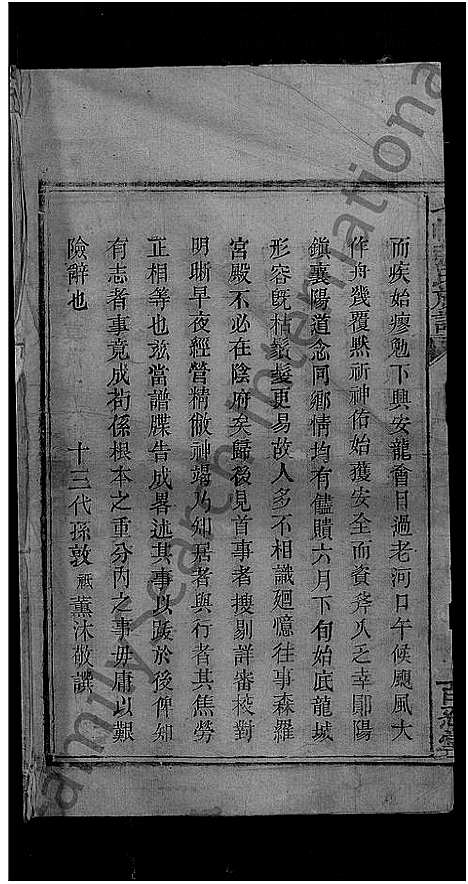 而疾始瘳勉下興安龍會日過老河口午候颶風大
作舟幾覆默祈神佑始獲安全而資斧久乏幸鄖陽
鎮襄陽道念同鄉情均有儘贐六月下旬始底龍城
形容既枯鬚髮更易故人多不相識廻憶往事森羅
宮殿不必在陰府矣歸後見首事者搜剔詳審校對
明晰早夜經營精傲神竭乃知居者與行者其焦勞
正相等也玆當譜牒告成畧述其事以跋於後俾知
有志者事竟成茍係根本之重分內之事毋庸以艱
險辭也
十三代孫敦祇薰沐敬譔
Family Search International